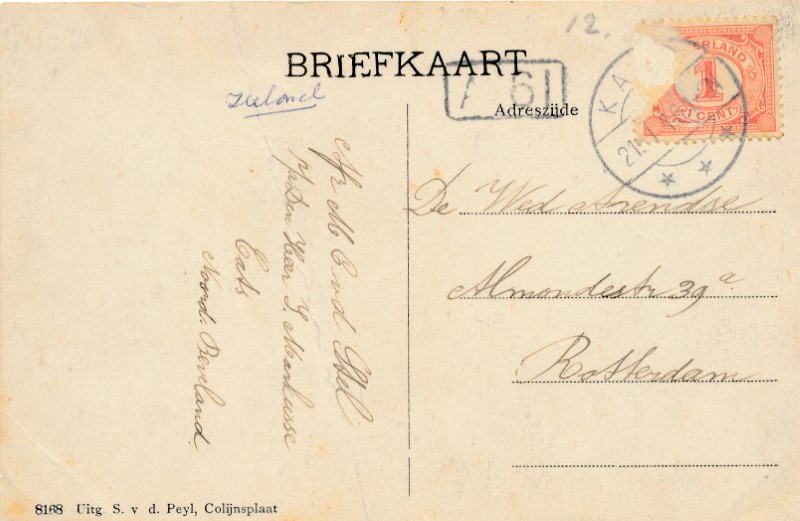 12.
BRIEFKAART
A 61
Adreszijde
Zeeland
NEDERLAND
1
CENT
KA
21.1
Afz M C v d Stel
p/a Den Heer S. Markusse
Cats
Noord-Beveland
De Wed Arendse
Almondestr 39a
Rotterdam
8168 Uitg S. v d. Peyl, Colijnsplaat